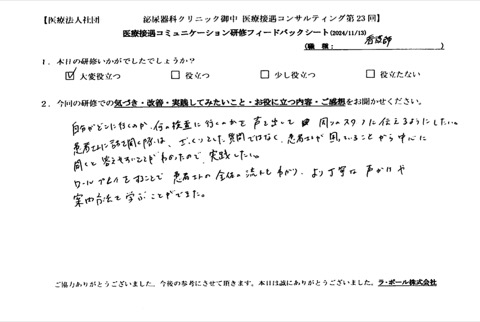 【医療法人社団 泌尿器科クリニック御中 医療接遇コンサルティング第23回】
医療接遇コミュニケーション研修フィードバックシート(2024/11/13)
(職種: 看護師 )
1.本日の研修いかがでしたでしょうか?
☑大変役立つ □役立つ □少し役立つ □役立たない
2.今回の研修での気づき・改善・実践してみたいこと・お役に立つ内容・ご感想をお聞かせください。
自分がどこに行くのか、何の検査に行くのかを声に出して 周りのスタッフに伝えるようにしたい。
患者さんに話を聞く際は、ざっくりとした質問ではなく、患者さんが困っていることから中心に
聞くと答えやすいことがわかったので、実践したい。
ロールプレイをすることで患者さんの全体の流れもわかり、より丁寧な声かけや
案内方法を学ぶことができた。
ご協力ありがとうございました。今後の参考にさせて頂きます。本日は誠にありがとうございました。ラ・ポール株式会社